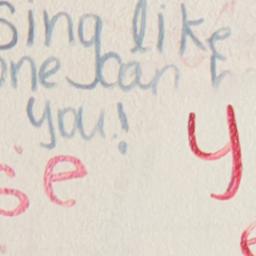 sing like
one can h
you!
se y